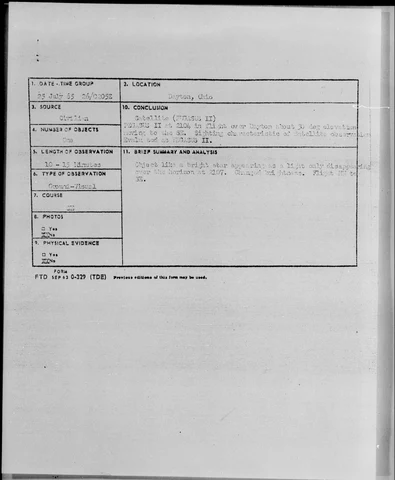 1. DATE - TIME GROUP
25 July 65 26/0205Z
2. LOCATION
Dayton, Ohio
3. SOURCE
Civilian
10. CONCLUSION
Satellite (PEGASUS II)
PEGASUS II at 2104 in flight over Dayton about 30 deg elevation
moving to the SE. Sighting characteristic of satellite observation
Evaluated as PEGASUS II.
4. NUMBER OF OBJECTS
One
5. LENGTH OF OBSERVATION
10 - 15 Minutes
11. BRIEF SUMMARY AND ANALYSIS
Object like a bright star appearing as a light only disappearing
over the horizon at 2107. Changed brightness. Flight to
SE.
6. TYPE OF OBSERVATION
Ground-Visual
7. COURSE
SE
8. PHOTOS
□ Yes
No
9. PHYSICAL EVIDENCE
□ Yes
No
FORM
FTD SEP 63 0-329 (TDE) Previous editions of this form may be used.